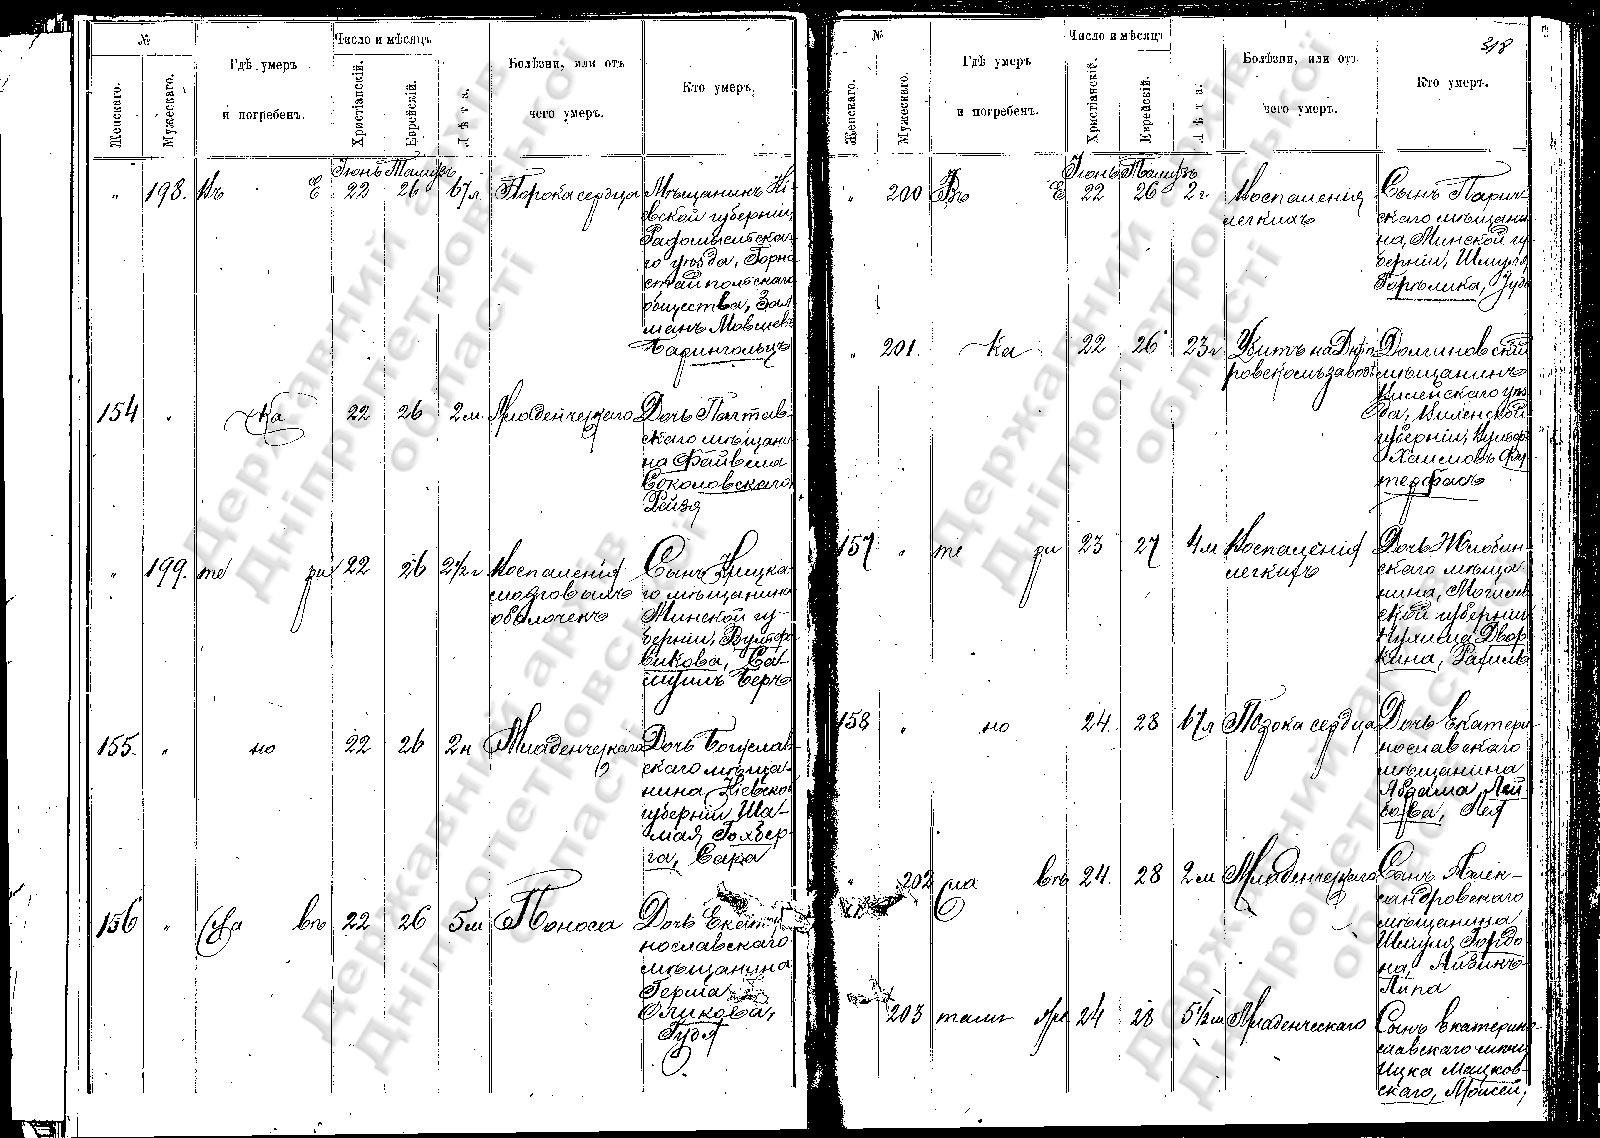 №
Женскаго.
Мужескаго.
Гдѣ умеръ
и погребенъ.
Число и мѣсяцъ
Христіанскій.
Еврейскій.
Лѣта.
Болѣзни, или отъ
чего умеръ.
Кто умеръ.
Іюнь Тамузъ
" 198. Въ Е 22 26 67 л. Порока сердца
Мѣщанинъ Кі-
евской губерніи,
Радомысльска-
го уѣзда, Горно-
стайпольскаго
общества, Зал-
манъ Мовшевъ
Барингольцъ
154 " ка 22 26 2 м. Младенческаго
Дочь Полтав-
скаго мѣщани-
на Файвеля
Соколовскаго
Рейзя
" 199. те ри 22 26 2½ г Воспаленія
мозговыхъ
оболочекъ
Сынъ
го мѣщанина
Минской гу-
берніи, Вульфо-
викова, Са-
муилъ Беръ
155. " но 22 26 2 н Младенческаго
Дочь Богуслав-
скаго мѣща-
нина Кіевской
губерніи Ша-
мая Гохбер-
га, Сара
156 " сла въ 22 26 5 м Поноса
Дочь Екатери-
нославскаго
мѣщанина
Герша
Очикова,
Гудя
318
№
Женскаго.
Мужескаго.
Гдѣ умеръ
и погребенъ.
Число и мѣсяцъ
Христіанскій.
Еврейскій.
Лѣта.
Болѣзни, или отъ
чего умеръ.
Кто умеръ.
Іюнь Тамузъ
" 200 Въ Е 22 26 2 г Воспаленія
легкихъ
Сынъ Парич-
скаго мѣщани-
на, Минской гу-
берніи, Шмуля
Горѣлика,
" 201. ка 22 26 23 г Убитъ на Днѣп-
ровскомъ заводѣ
Долгиновскій
мѣщанинъ
Виленскаго уѣз-
да, Виленской
губерніи, Вульфъ
Хаимовъ
157 " те ри 23 27 4 м Воспаленія
легкихъ
Дочь Жлобин-
скаго мѣща-
нина, Могилев-
ской губерніи
Двор-
кина, Рахиль
158 " но 24 28 67 л Порока сердца
Дочь Екатери-
нославскаго
мѣщанина
Абрама Лей-
бова, Лея
" 202 сла въ 24. 28 2 м Младенческаго
Сынъ Алек-
сандровскаго
мѣщанина
Шмуля Гордо-
на, Айзикъ-
Липа
203 тамъ же 24 28 5½ м Младенческаго
Сынъ Екатерино-
славскаго мѣщ.
Ицка Мацков-
скаго, Моисей,
Державний архів
Дніпропетровської
області